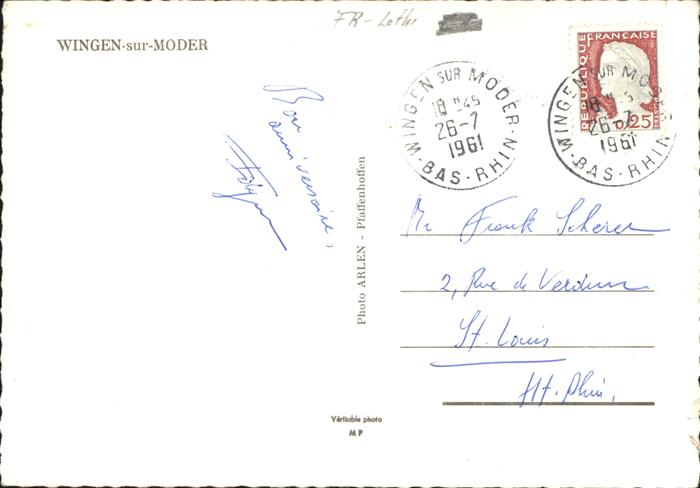 FR - Lothr
WINGEN-sur-MODER
RÉPUBLIQUE FRANÇAISE
0,25
WINGEN SUR MODER
18 H 45
26-7
1961
BAS-RHIN
WINGEN SUR MODER
18 H 45
26-7
1961
BAS-RHIN
Bon
anniversaire,
Photo ARLEN - Pfaffenhoffen
Mr Frank Scherer
2, Rue de Verdun
St. Louis
Ht. Rhin.
Véritable photo
M P